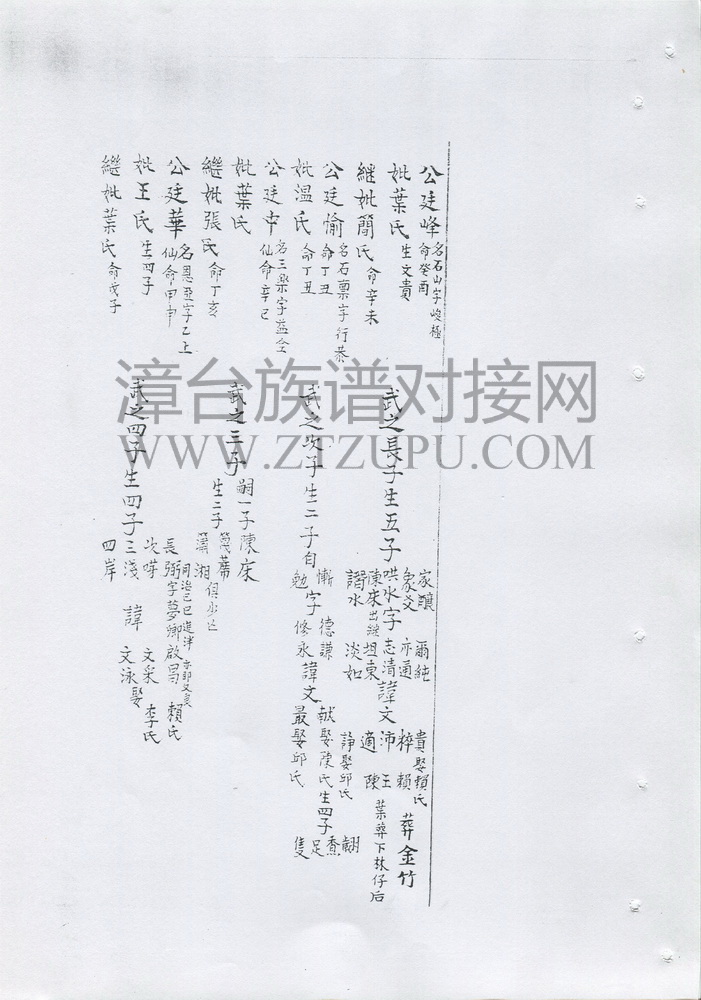 公廷峰 名石山字峻極
命癸酉
妣葉氏 生文貴
継妣簡氏 命辛未
公廷愉 名石稟字行恭
命丁丑
妣溫氏 命丁丑
公廷中 名三樂字益仝
仙命辛巳
妣葉氏
繼妣張氏 命丁亥
公廷華 名恩亞字乙上
仙命甲申
妣王氏 生四子
繼妣葉氏 命戊子
武之長子生五子
家釀 爾純
象爻 亦通
哄水字 志清 諱文
陳床出継 坦東
譖水 淡如
貴娶賴氏
粹 賴
沛 王
適 陳
諍娶邱氏
葬金竹
葉葬下林仔后
武之次子生二子自
慚字 德謙
勉 修永 諱文
献娶陳氏生四子
最娶邱氏
翻
焘
足
隻
武之三子 嗣一子陳床
生二子
篾蓆
簫湘 俱少亡
武之四子生四子
長弼字夢卿啟昌 賴氏
同治己巳進泮
次哮 文采 李氏
三淺 諱 文泳娶
四岸
漳台族谱对接网
WWW.ZTZUPU.COM